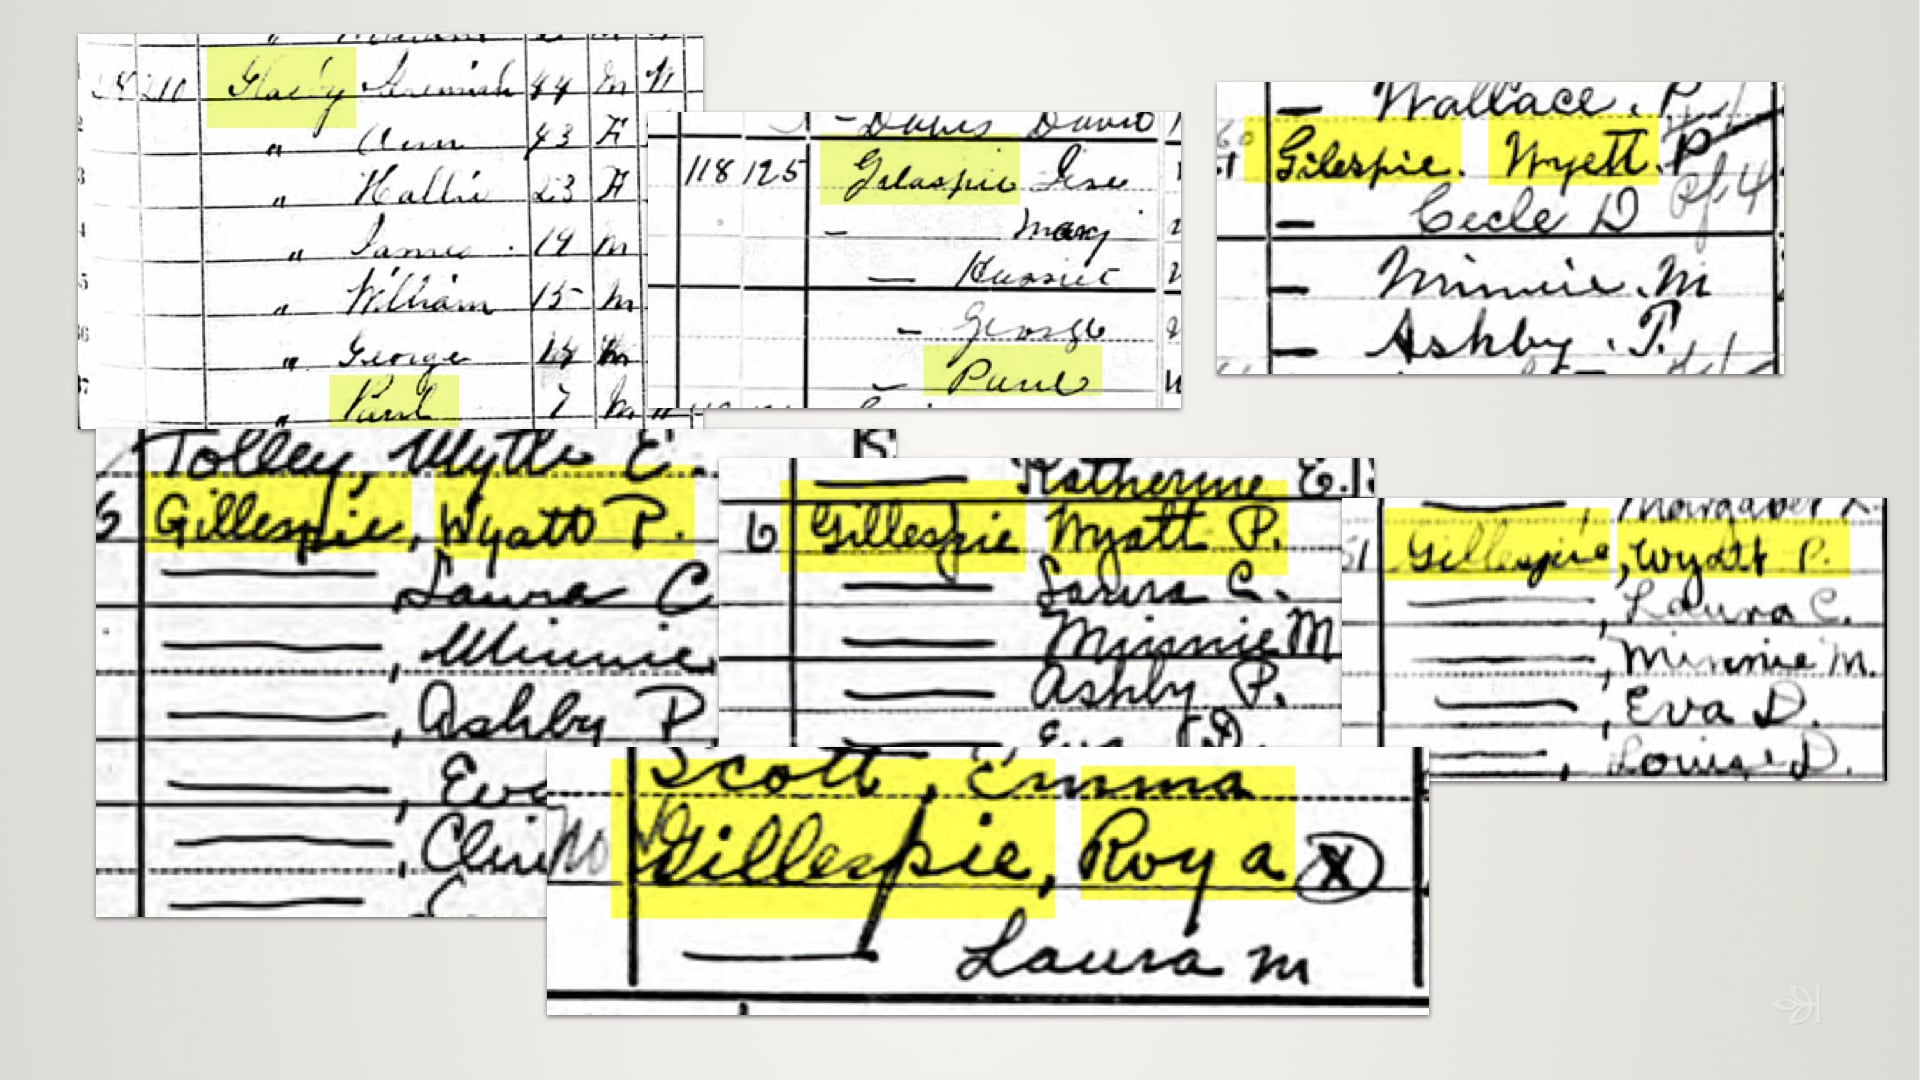 210 Jeremiah 44 M W
" Ann 43 F
" Hallie 23 F
" James 19 M
" William 15 M
" George 14 M
" Paul 7 M "
- Davis David
118 125 Gilaspie
- Mary
- Harriet
- George
- Paul
- Wallace. P.
Gilespie. Wyett. P
- Cecle D
- Minnie. M
- Ashby. P.
Tolley, Mytle E.
Gillespie, Wyatt P.
, Laura C
, Minnie
, Ashby P
, Eva
, Clin
Katherine E.
6 Gillespie Wyatt P.
Laura C.
Minnie M
Ashby P.
Eva D.
Margaret L.
51 Gillespie, Wyatt P.
, Laura C.
, Minnie M.
, Eva D.
, Louise D.
Scott, Emma
No Gillespie, Roy a X
Laura m